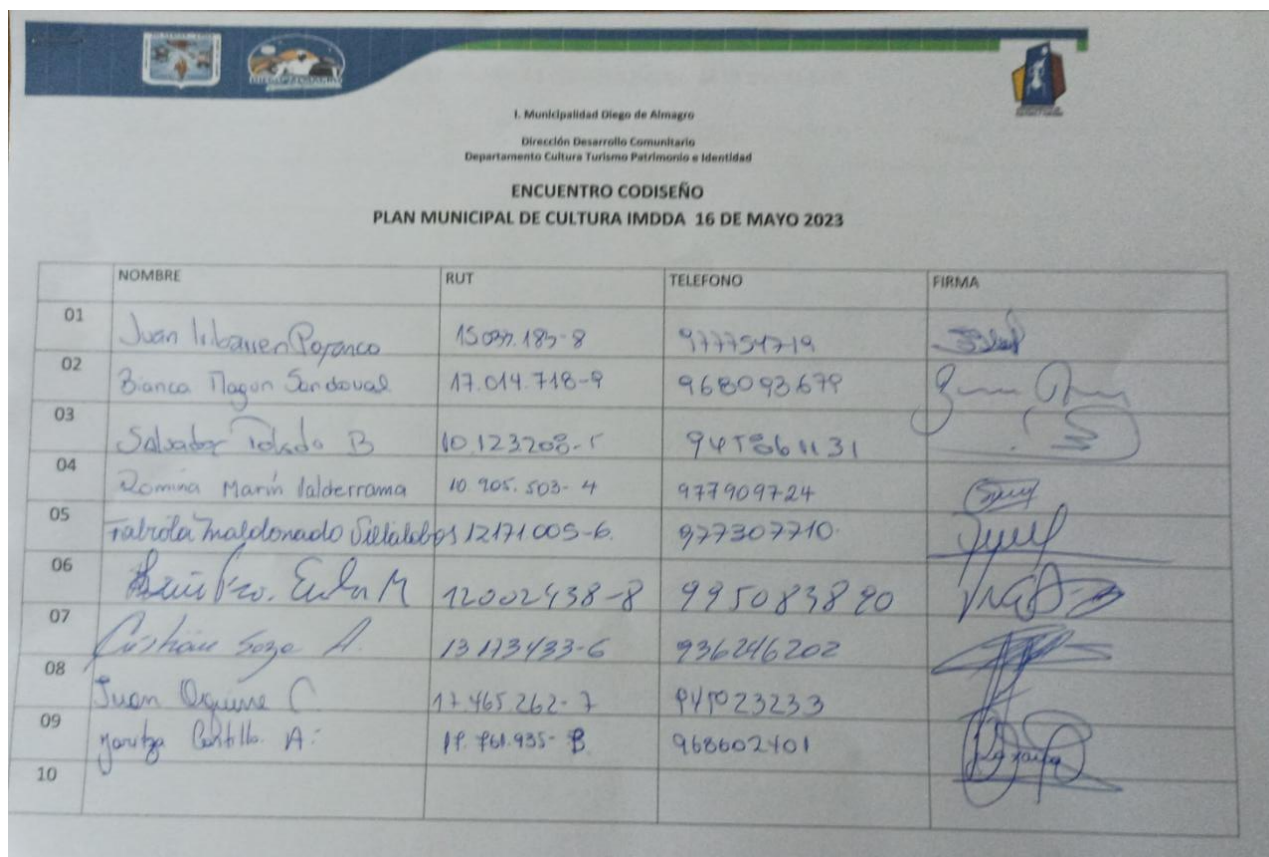 I. Municipalidad Diego de Almagro
Dirección Desarrollo Comunitario
Departamento Cultura Turismo Patrimonio e Identidad
ENCUENTRO CODISEÑO
PLAN MUNICIPAL DE CULTURA IMDDA 16 DE MAYO 2023
NOMBRE RUT TELEFONO FIRMA
01 Juan Iribarren 977754719
02 Bianca Magon Sandoval 17.014.718-9 968093679
03 Salvador Toledo B
04 Romina Marín Valderrama 10.905.503-4 977909724
05 Fabiola Maldonado Villalobos 12171.005-6. 977307710
06 12002438-8 995083890
07 Cristian Sozo A. 13173433-6 936246202
08 Juan Aguirre C 17.465.262-7 945023233
09 Maritza Castillo A. 968602401
10